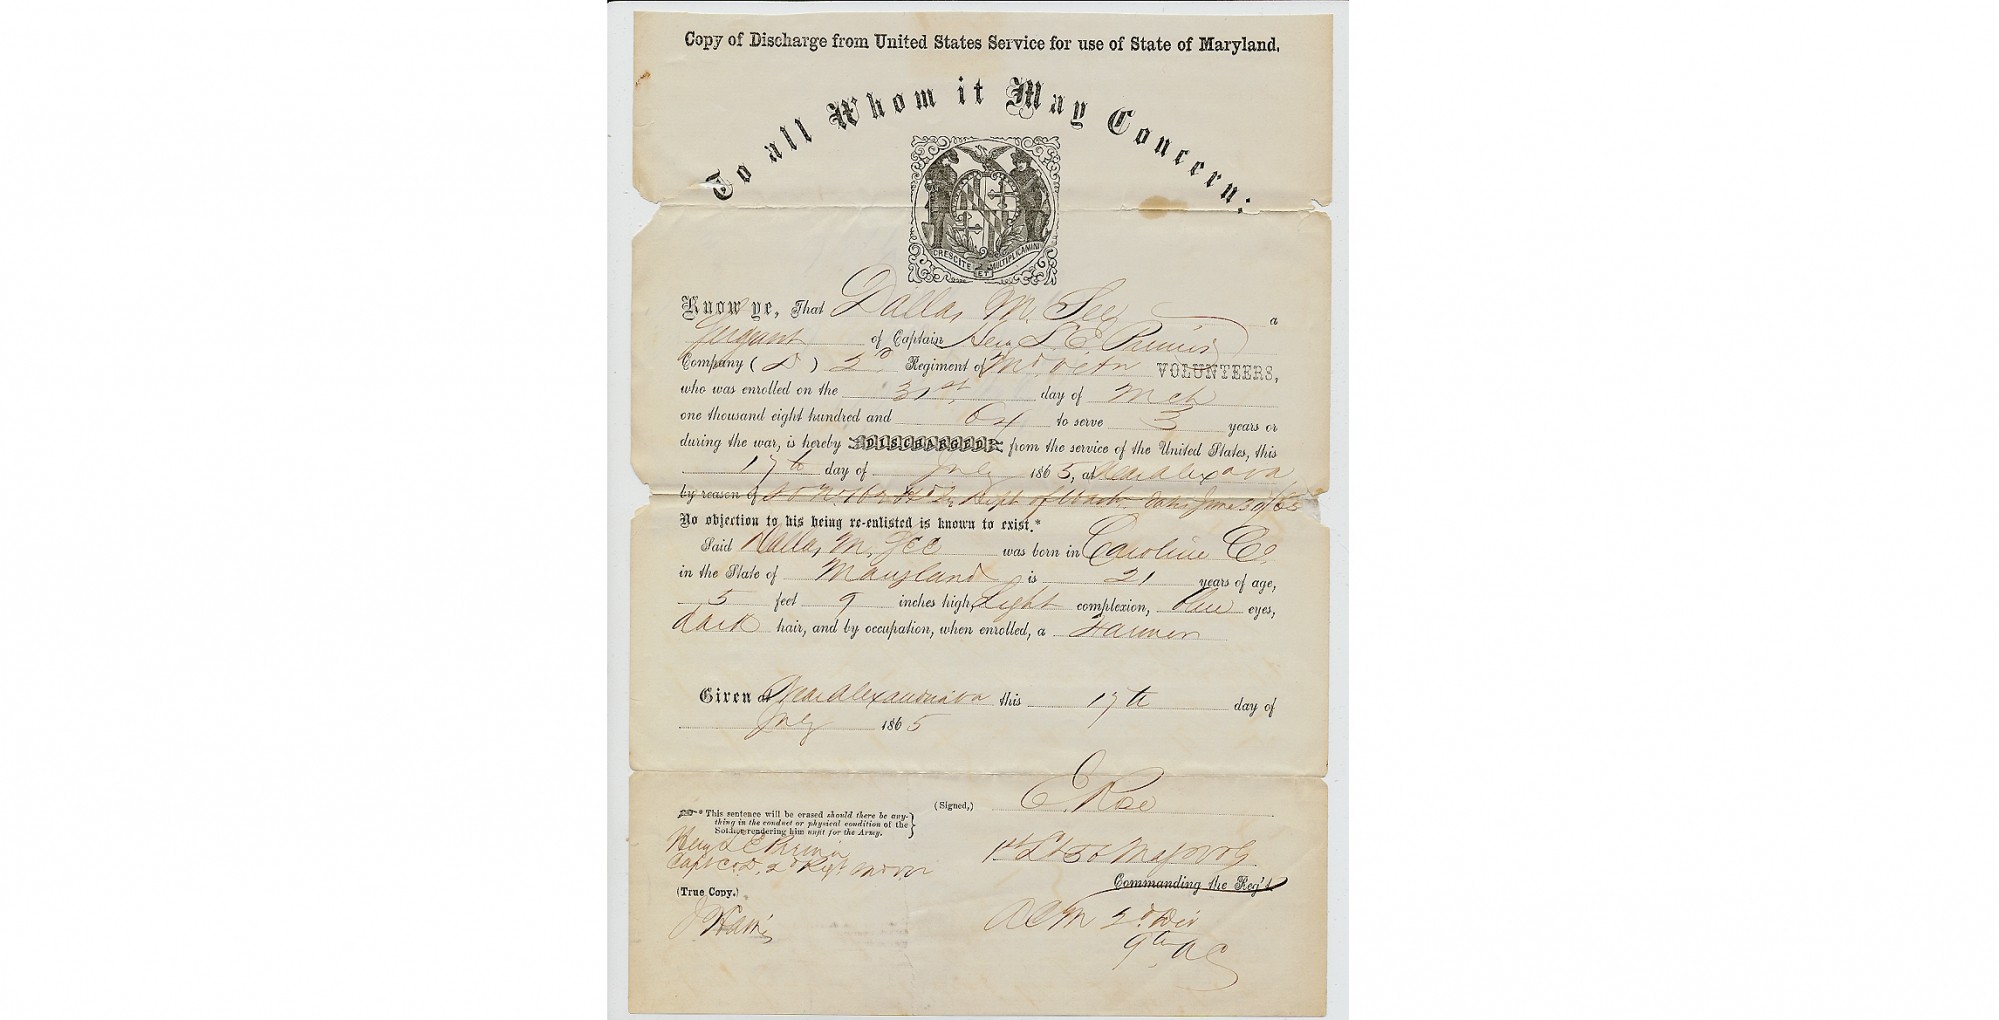 Copy of Discharge from United States Service for use of State of Maryland.
To all Whom it May Concern:
CRESCITE ET MULTIPLICAMINI
Know ye, That Dallas M. Lee a
Sergeant of Captain Benj L. E.
Company ( D ) 2d Regiment of Md Vetn VOLUNTEERS,
who was enrolled on the 31st day of Mch
one thousand eight hundred and 64 to serve 3 years or
during the war, is hereby DISCHARGED from the service of the United States, this
17th day of July 1865, at Near Alexa Va
by reason of S O No Hd Qrs Dept of Wash. date June 30/65
No objection to his being re-enlisted is known to exist.*
Said Dallas M. Lee was born in Caroline Co
in the State of Maryland is 21 years of age,
5 feet 9 inches high, Light complexion, blue eyes,
dark hair, and by occupation, when enrolled, a Farmer
Given at Near Alexandria Va this 17th day of
July 1865
* This sentence will be erased should there be any-
thing in the conduct or physical condition of the
Soldier rendering him unfit for the Army.
(Signed,) E. Roe
Benj L E
Capt Co D, 2d Regt Md
1st Lt 56 Mass Vols
Commanding the Reg't.
(True Copy.)
A C M 2d Div
9th A C